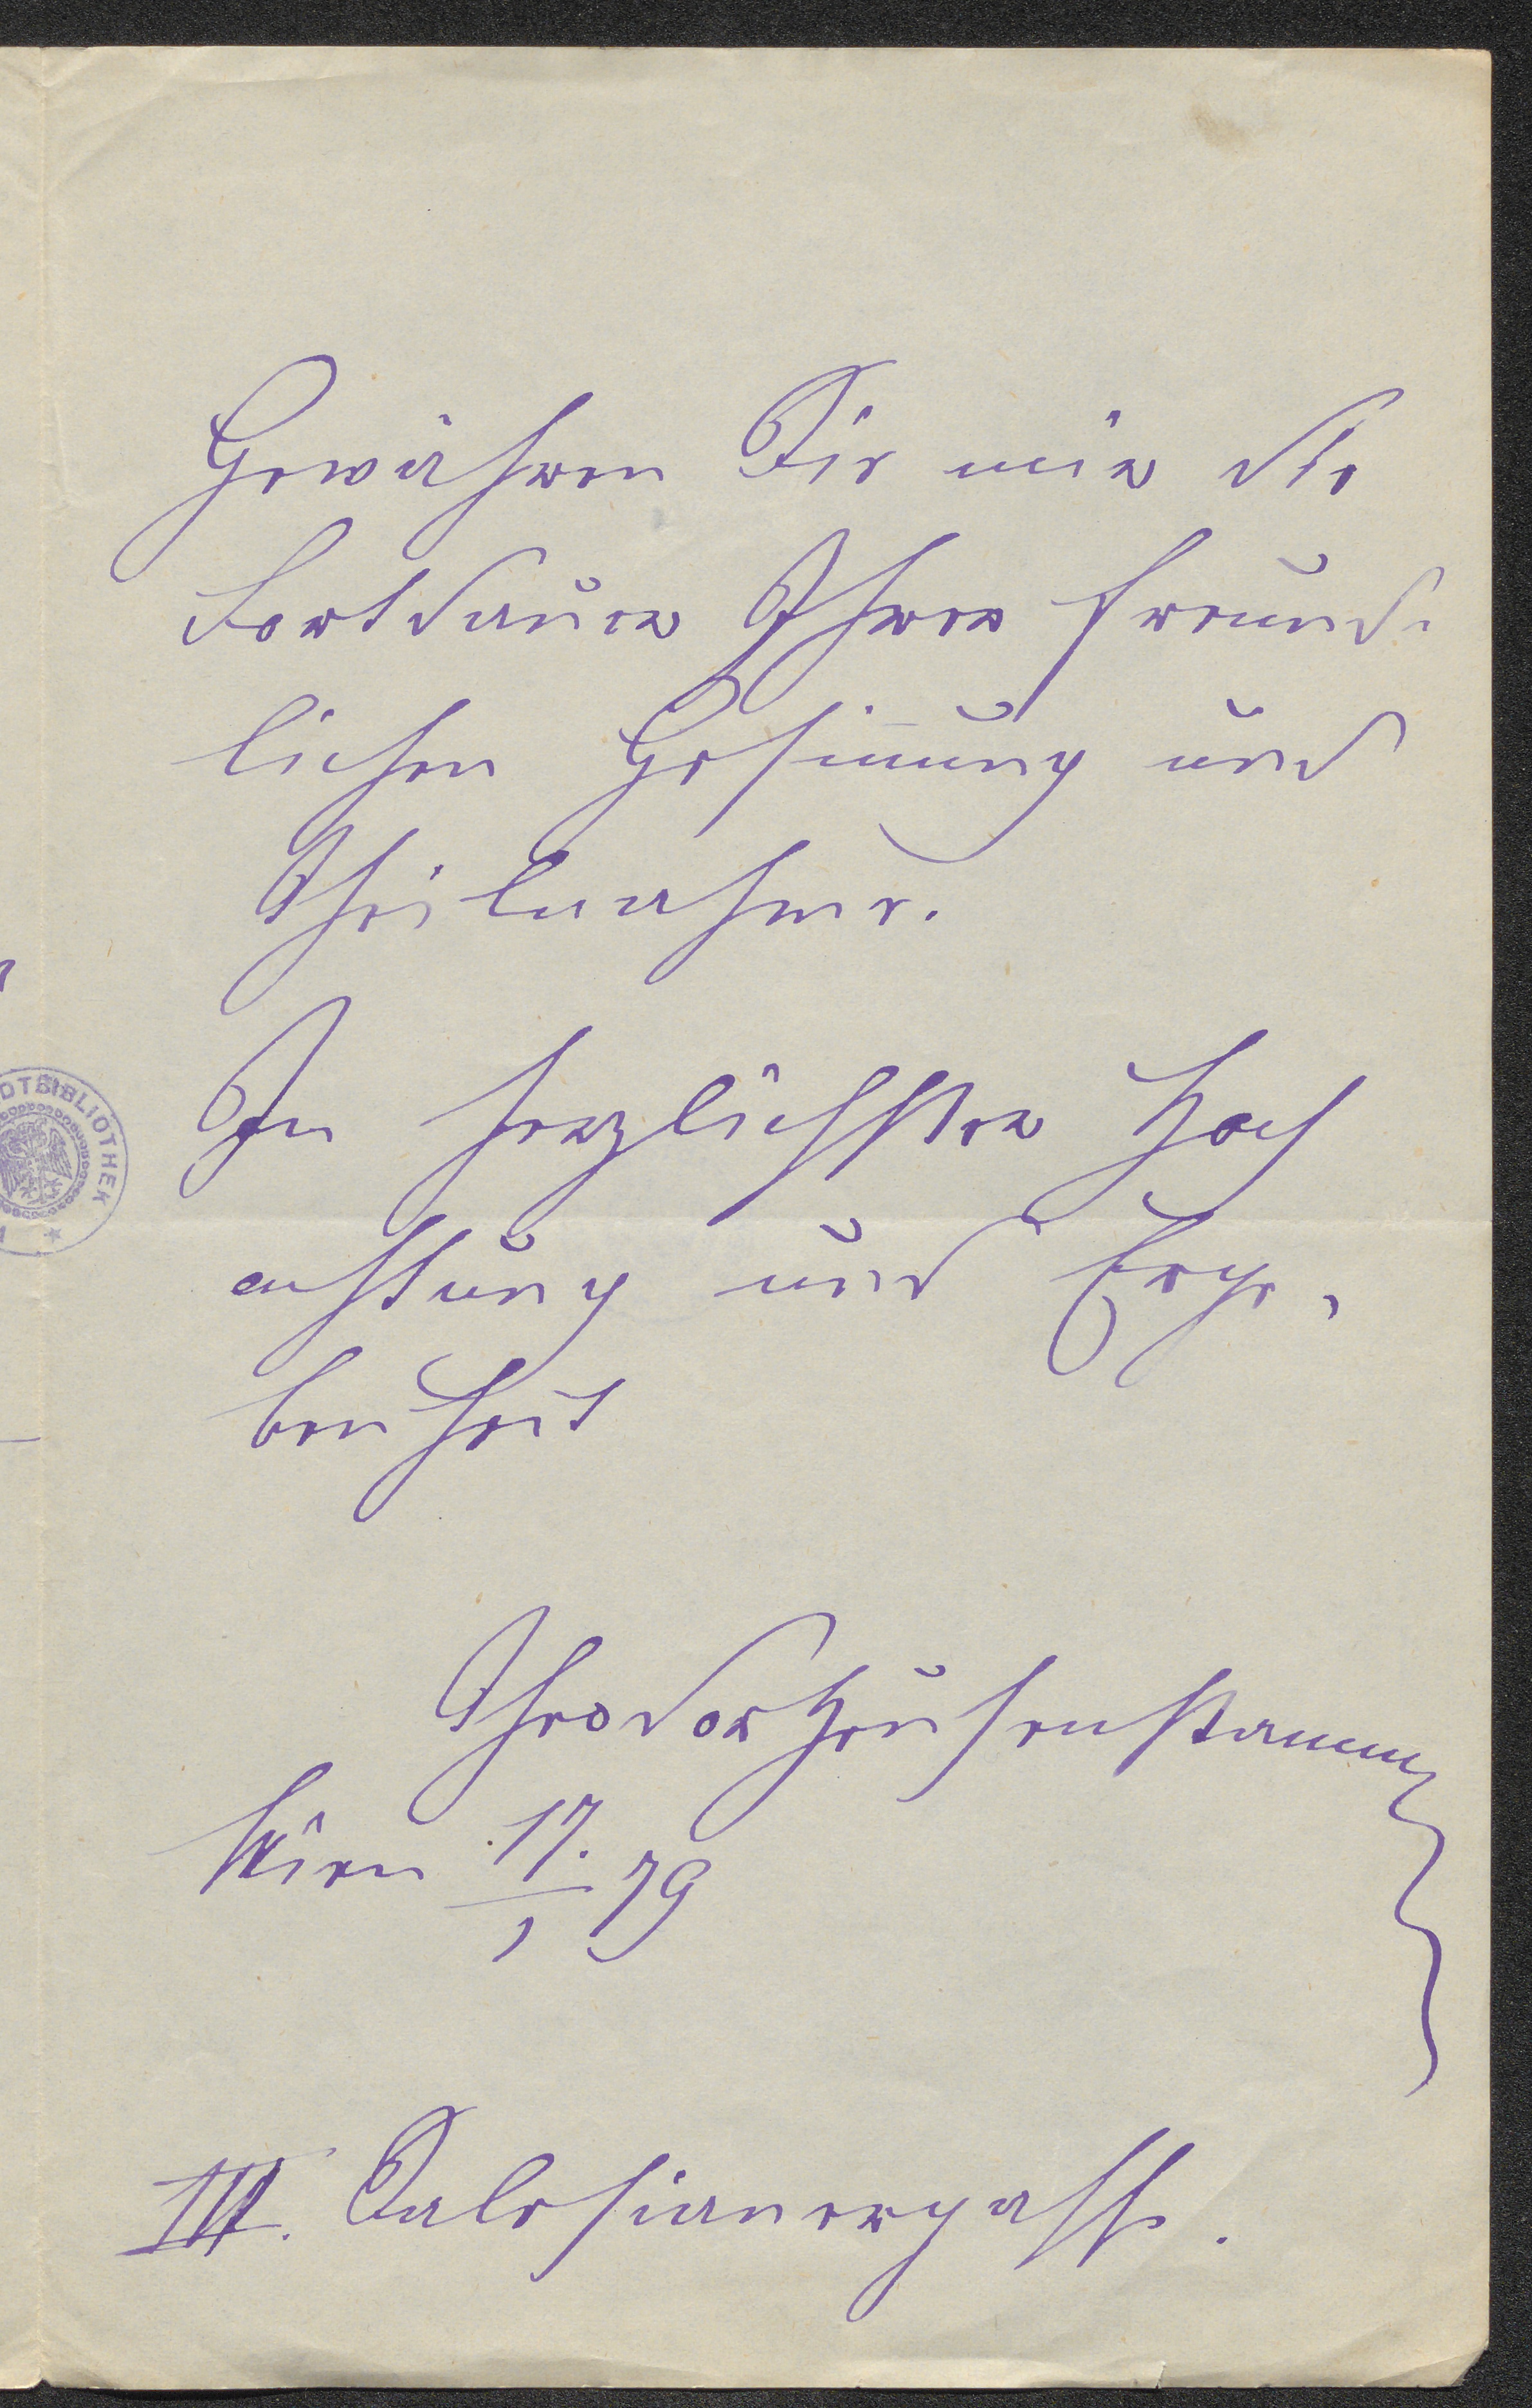 Gewähren Sie mir die
Fortdauer Ihrer freund-
lichen Gesinnung und
Theilnahme.
In herzlichster Hoch
achtung und Erge-
benheit
Theodor Heusenstamm
Wien 17./1 79
III. Salesianergasse.
DTBIBLIOTHEK